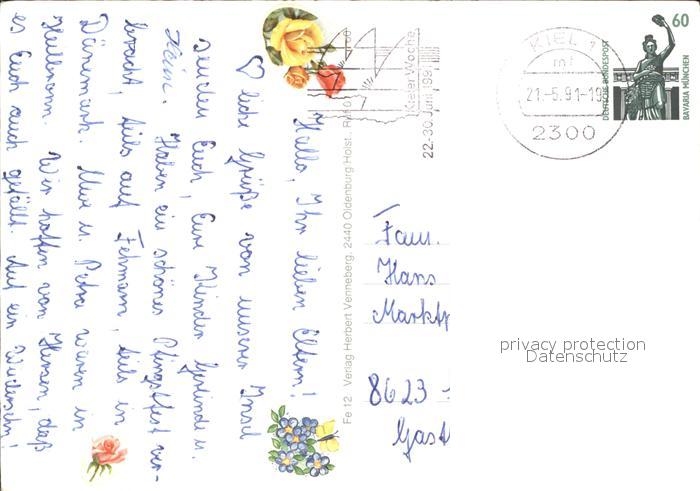 Hallo, Ihr lieben Eltern!
♡liche Grüße von unserer Insel
senden Euch, Eure Kinder Gerlinde u.
Heinz. Haben ein schönes Pfingstfest ver-
bracht, teils auf Fehmarn, teils in
Dänemark. Uwe u. Petra waren in
Wir hoffen von Herzen, daß
es Euch auch gefällt. Auf ein Wiedersehn!
Fe 12 Verlag Herbert Venneberg, 2440 Oldenburg Holst.
Kieler Woche
22.-30. Juni 1991
KIEL 1
mf
21.-6.91-19
2300
60
DEUTSCHE BUNDESPOST
BAVARIA MÜNCHEN
Fam.
Hans
Marktp
8623
Gast
privacy protection
Datenschutz